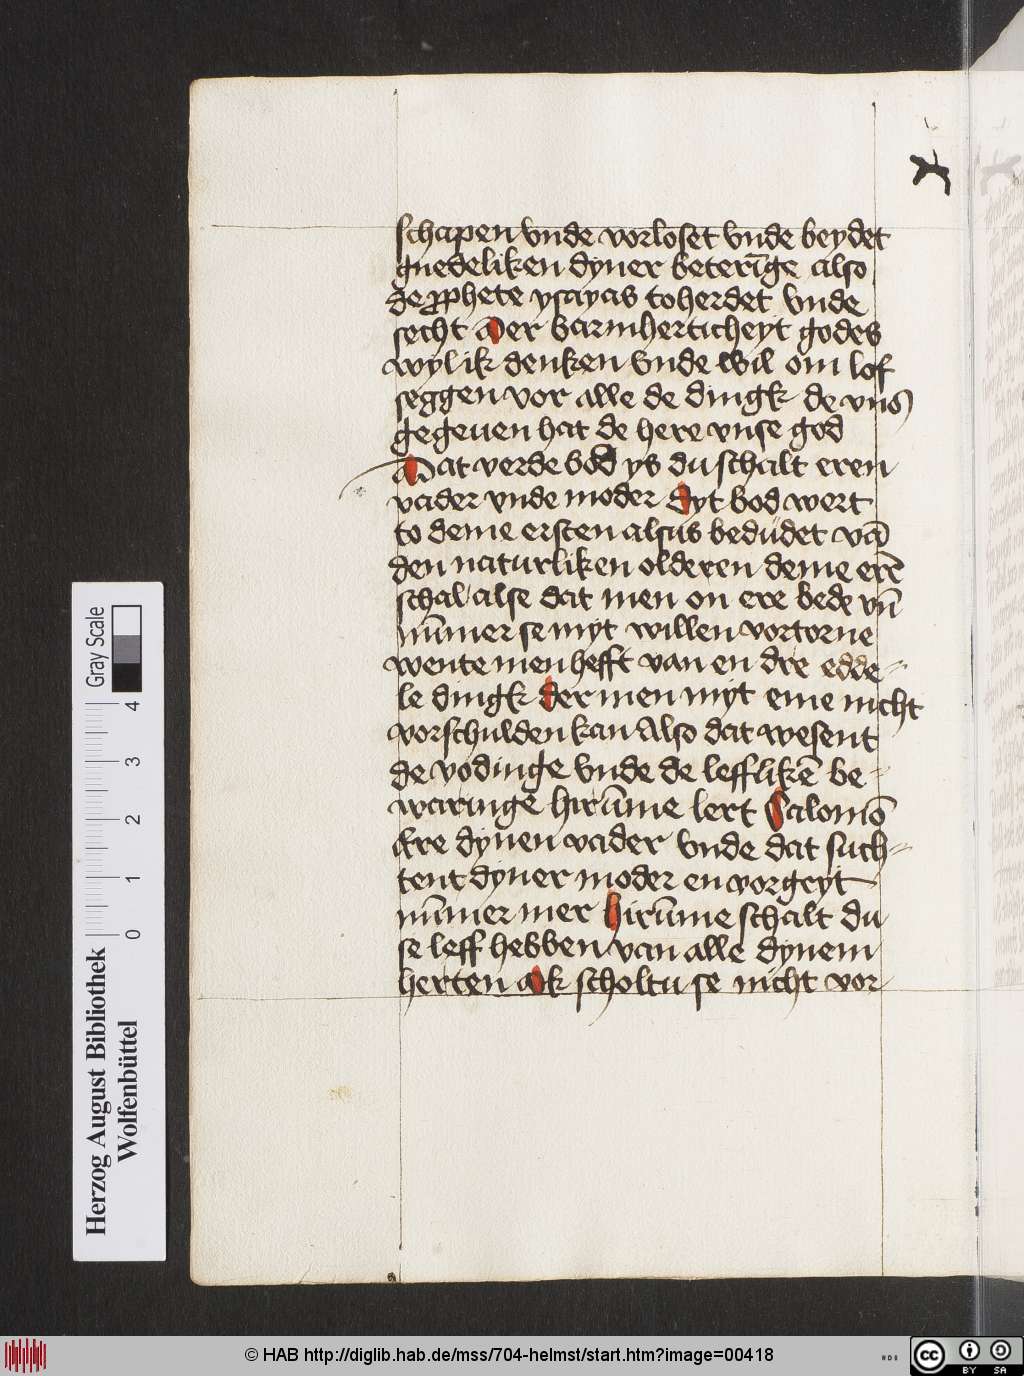 schapen vnde vorloset vnde beydet
gnedeliken dyner beterīge also
de ꝓphete ysayas toherdet vnde
secht Der barmherticheyt godes
wyl ik denken vnde wil om lof
seggen vor alle de dingk de vns
gegeuen hat de here vnse god
Dat verde bod ys du schalt eren
vader vnde moder dyt bod wert
to deme ersten alsus bedudet vā
den naturliken olderen deme erē
schal alse dat men on ere bede vn̄
nūmer se myt willen vortorne
wente men hefft van en dre edde⸗
le dingk der men myt eme nicht
vorschulden kan Also dat wesent
de vodinge vnde de lefflikē be⸗
waringe hirūme lert Salomō
Ere dynen vader vnde dat such⸗
tent dyner moder en vorgeyt
nūmer mer hirūme schalt du
se leff hebben van alle dynem
herten Ok scholtu se nicht vor
Herzog August Bibliothek
Wolfenbüttel
0 1 2 3 4
Gray Scale
© HAB http://diglib.hab.de/mss/704-helmst/start.htm?image=00418
cc BY SA